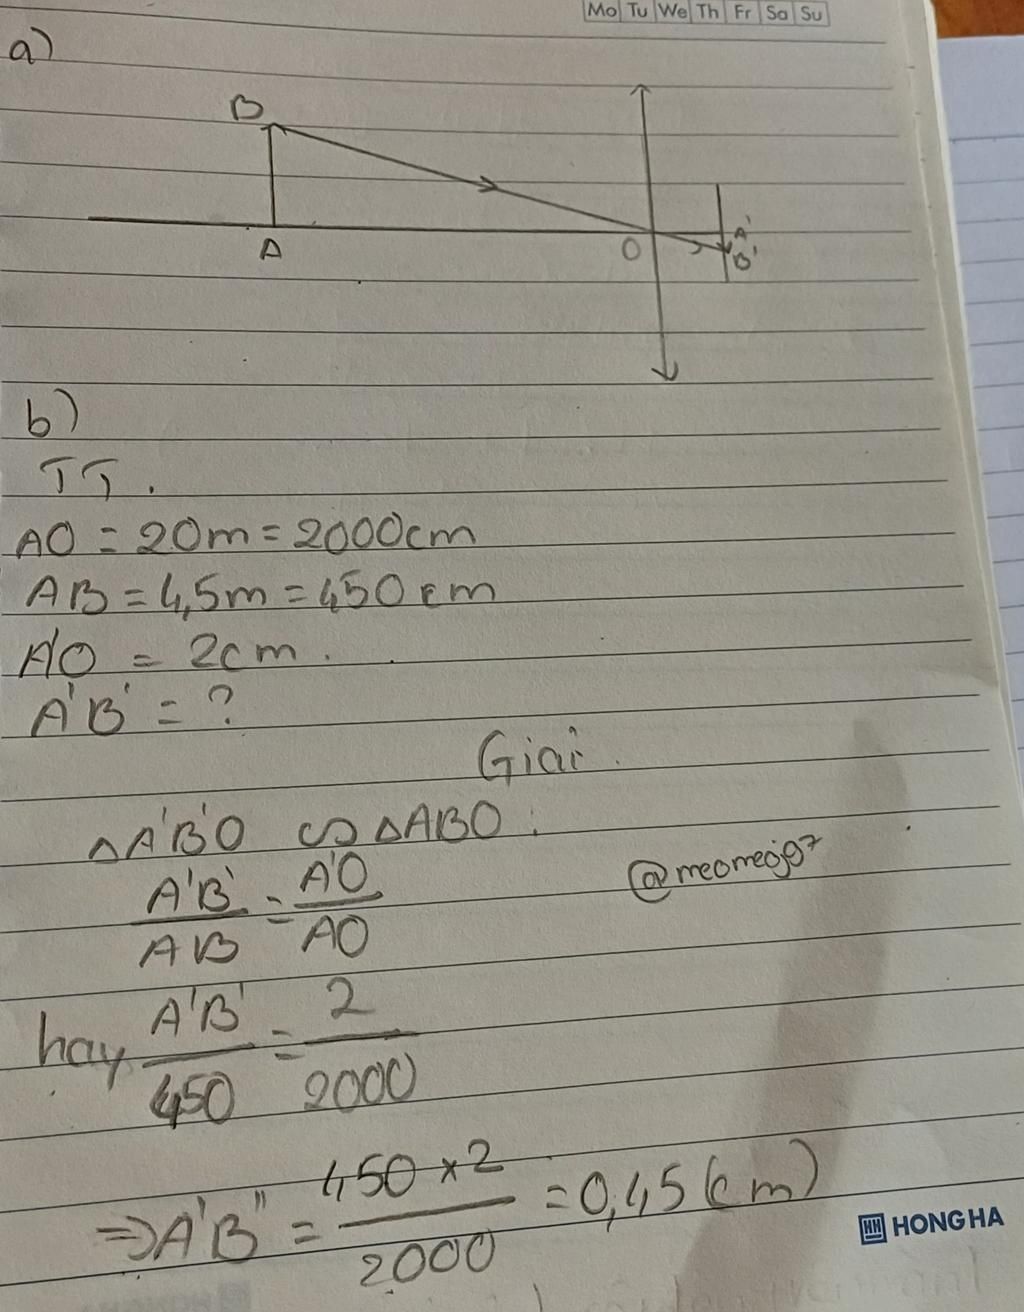 Mo Tu We Th Fr Sa Su
a)
B
A
O
A'
B'
b)
TT.
AO = 20m = 2000cm
AB = 4,5m = 450cm
A'O = 2cm.
A'B' = ?
Giai.
△A'B'O ∽ △ABO:
A'B'/AB = A'O/AO
@meomeo97
hay A'B'/450 = 2/2000
⇒ A'B'' = 450 x 2/2000 = 0,45 (cm)
HONG HA